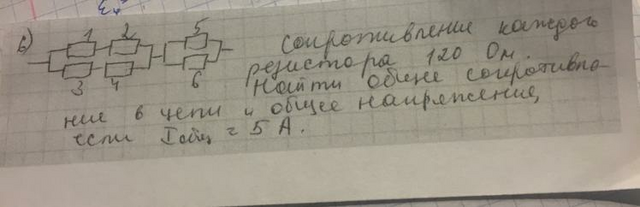 б)
1 2 5
3 4 6
Сопротивление каждого
резистора 120 Ом.
Найти общее сопротивле-
ние в цепи и общее напряжение,
если Iобщ = 5 А.